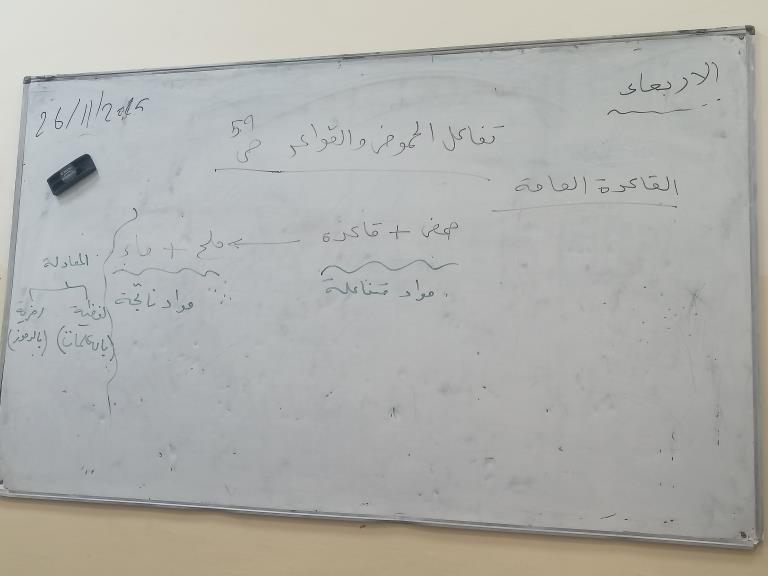 الاربعاء
26/11/2025
تفاعل الحموض والقواعد ص 59
القاعدة العامة
حمض + قاعدة ← ملح + ماء
مواد متفاعلة
مواد ناتجة
المعادلة
لفظية رمزية
(بالكلمات) (بالرموز)